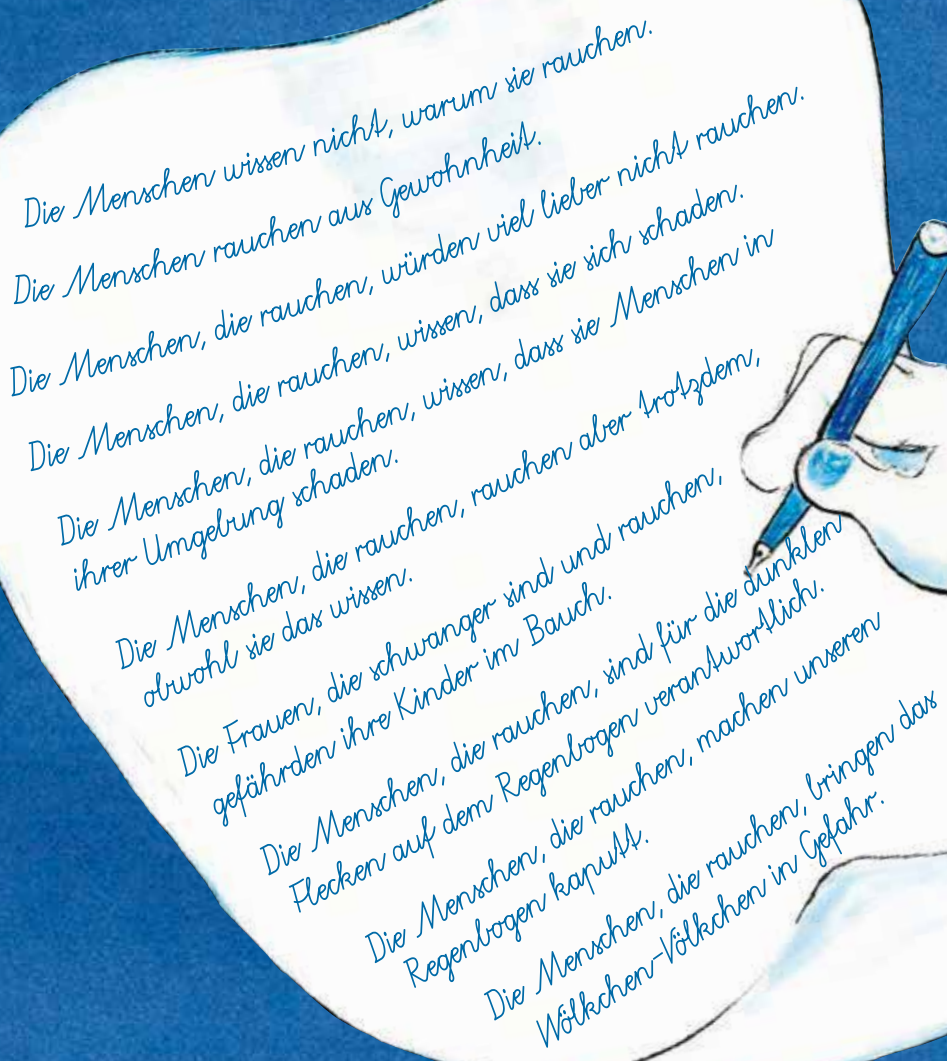 Die Menschen wissen nicht, warum sie rauchen.
Die Menschen rauchen aus Gewohnheit.
Die Menschen, die rauchen, würden viel lieber nicht rauchen.
Die Menschen, die rauchen, wissen, dass sie sich schaden.
Die Menschen, die rauchen, wissen, dass sie Menschen in
ihrer Umgebung schaden.
Die Menschen, die rauchen, rauchen aber trotzdem,
obwohl sie das wissen.
Die Frauen, die schwanger sind und rauchen,
gefährden ihre Kinder im Bauch.
Die Menschen, die rauchen, sind für die dunklen
Flecken auf dem Regenbogen verantwortlich.
Die Menschen, die rauchen, machen unseren
Regenbogen kaputt.
Die Menschen, die rauchen, bringen das
Wölkchen-Völkchen in Gefahr.